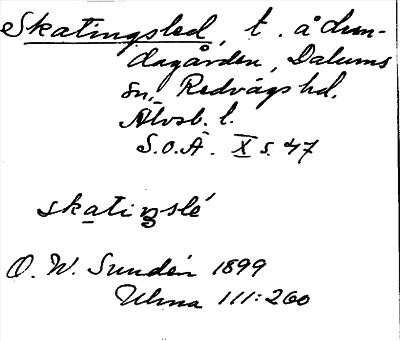 Skatingsled, t. å dun-
dagården, Dalums
sn, Redvägs hd.
Älvsb. l.
S.O.Ä. X s. 47
skatiŋslé
O. W. Sundén 1899
Ulma 111:260